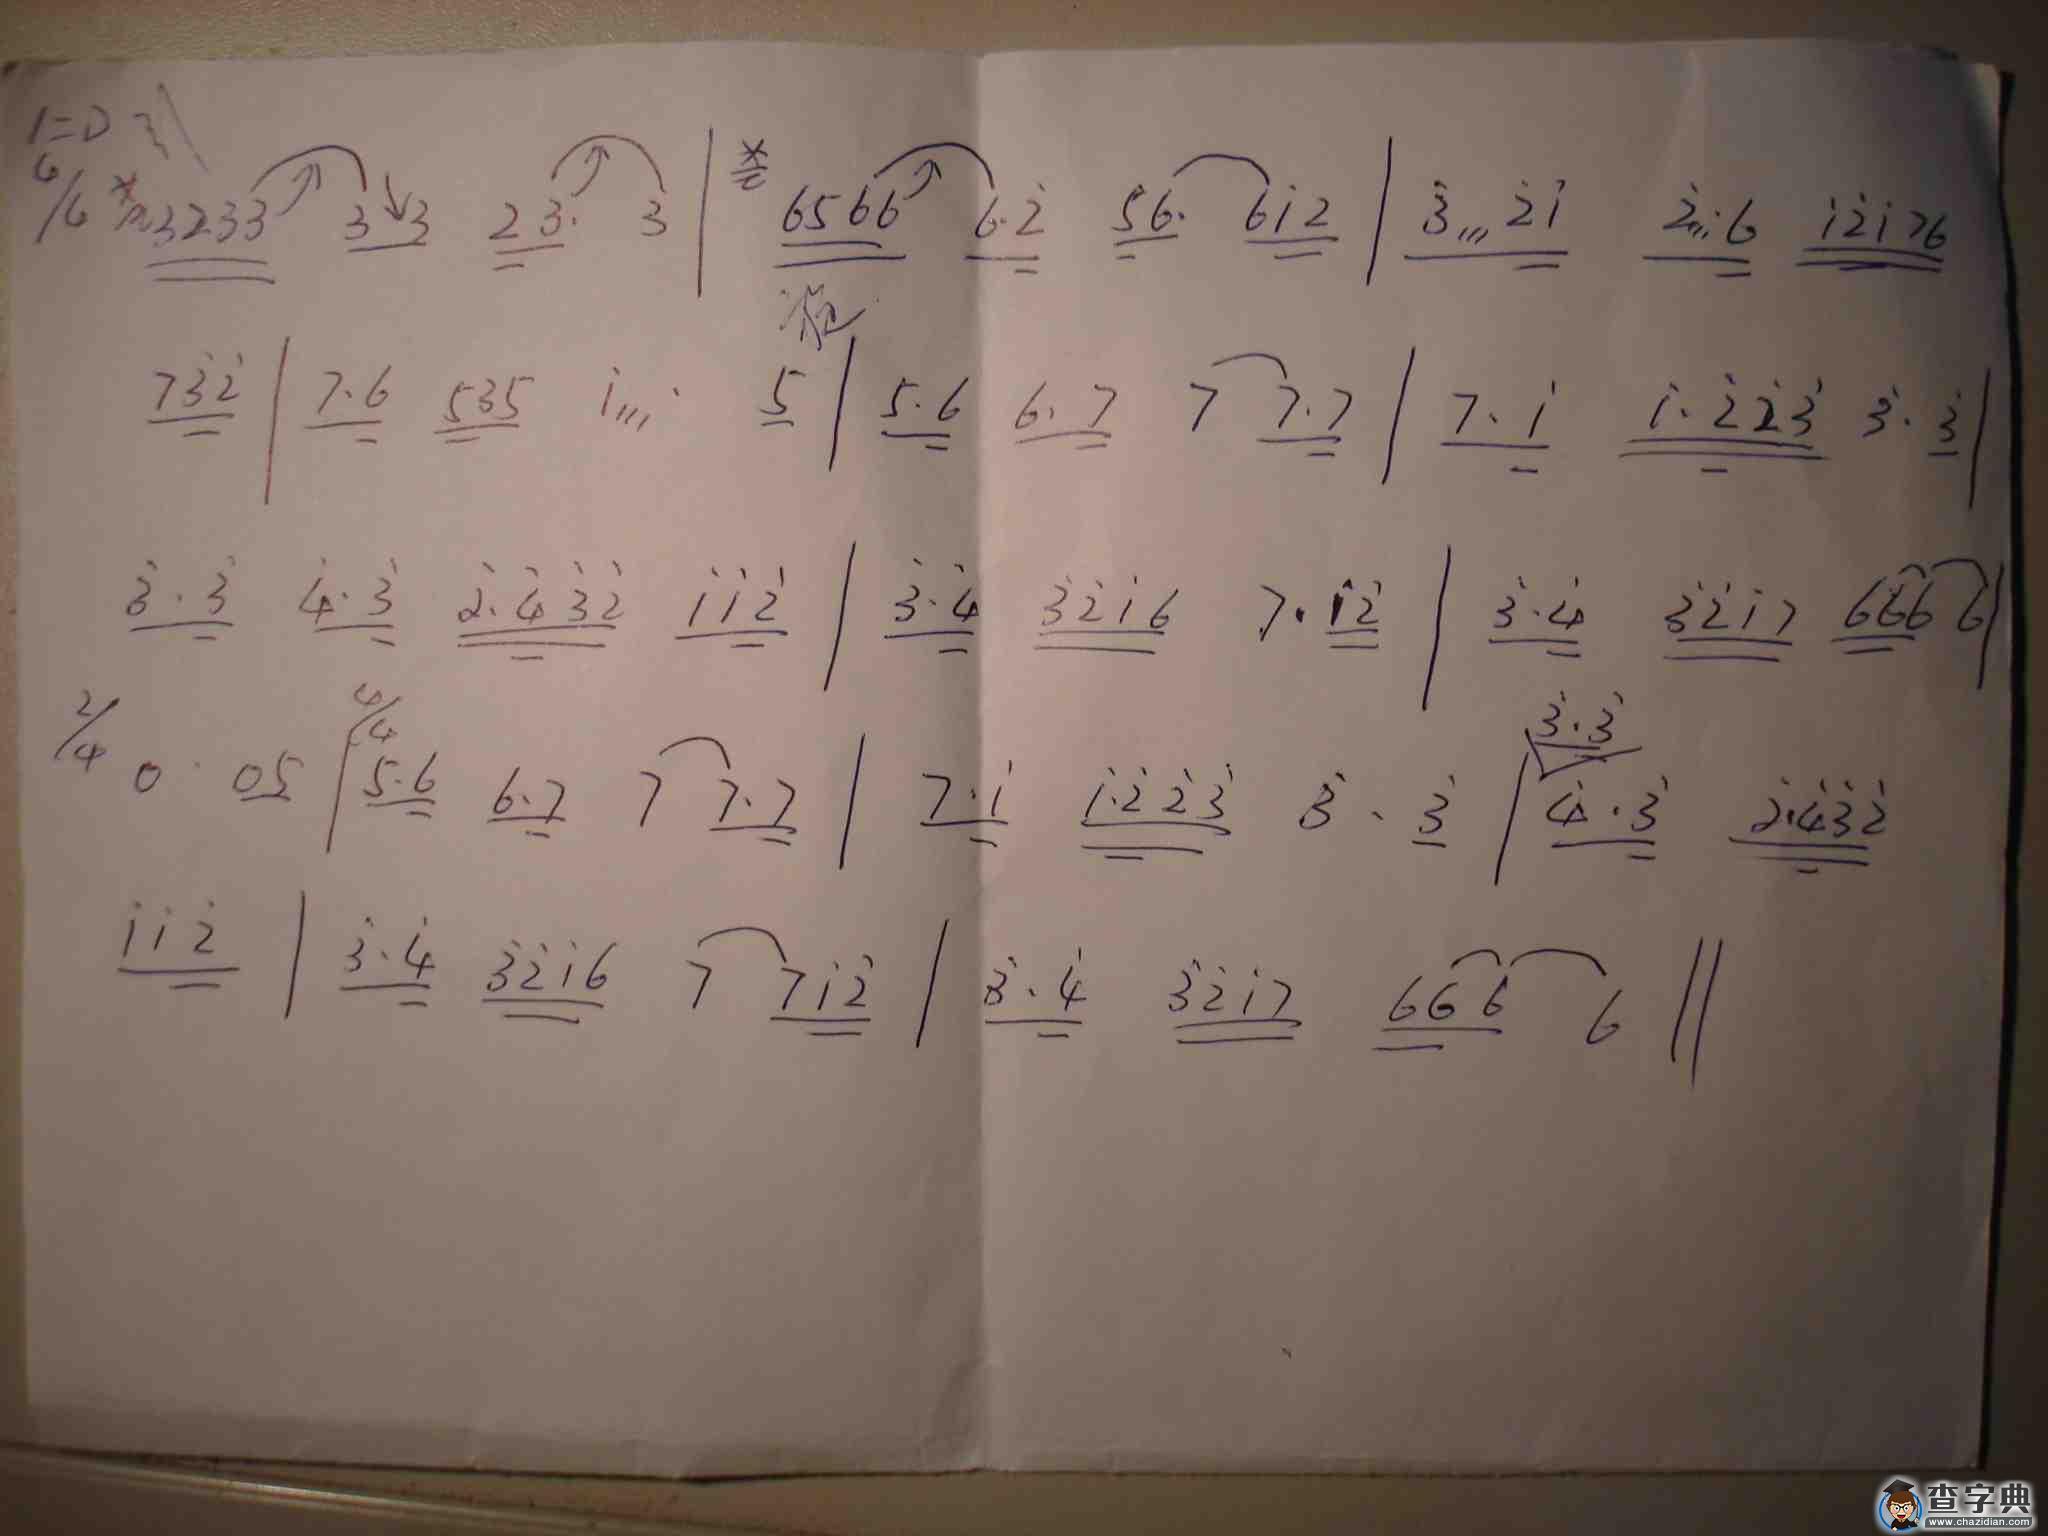 1=D
4/4 3233 3 3 23· 3 | 6566 6·2̇ 56· 61̇2̇ | 3̇,,, 2̇1̇ 2̇,,,·6 1̇2̇1̇76
73̇2̇ | 7·6 535 1̇,,,· 5 | 5·6 6·7 7 7·7 | 7·1̇ 1̇·2̇2̇3̇ 3̇·3̇ |
3̇·3̇ 4̇·3̇ 2̇·4̇3̇2̇ 1̇1̇2̇ | 3̇·4̇ 3̇2̇1̇6 7·1̇2̇ | 3̇·4̇ 3̇2̇1̇7 666 6 |
3̇·3̇
2/4 0 05 | 4/4 5·6 6·7 7 7·7 | 7·1̇ 1̇·2̇2̇3̇ 3̇·3̇ | 4̇·3̇ 2̇·4̇3̇2̇
1̇1̇2̇ | 3̇·4̇ 3̇2̇1̇6 7 71̇2̇ | 3̇·4̇ 3̇2̇1̇7 666 6 ||
查字典
www.chazidian.com